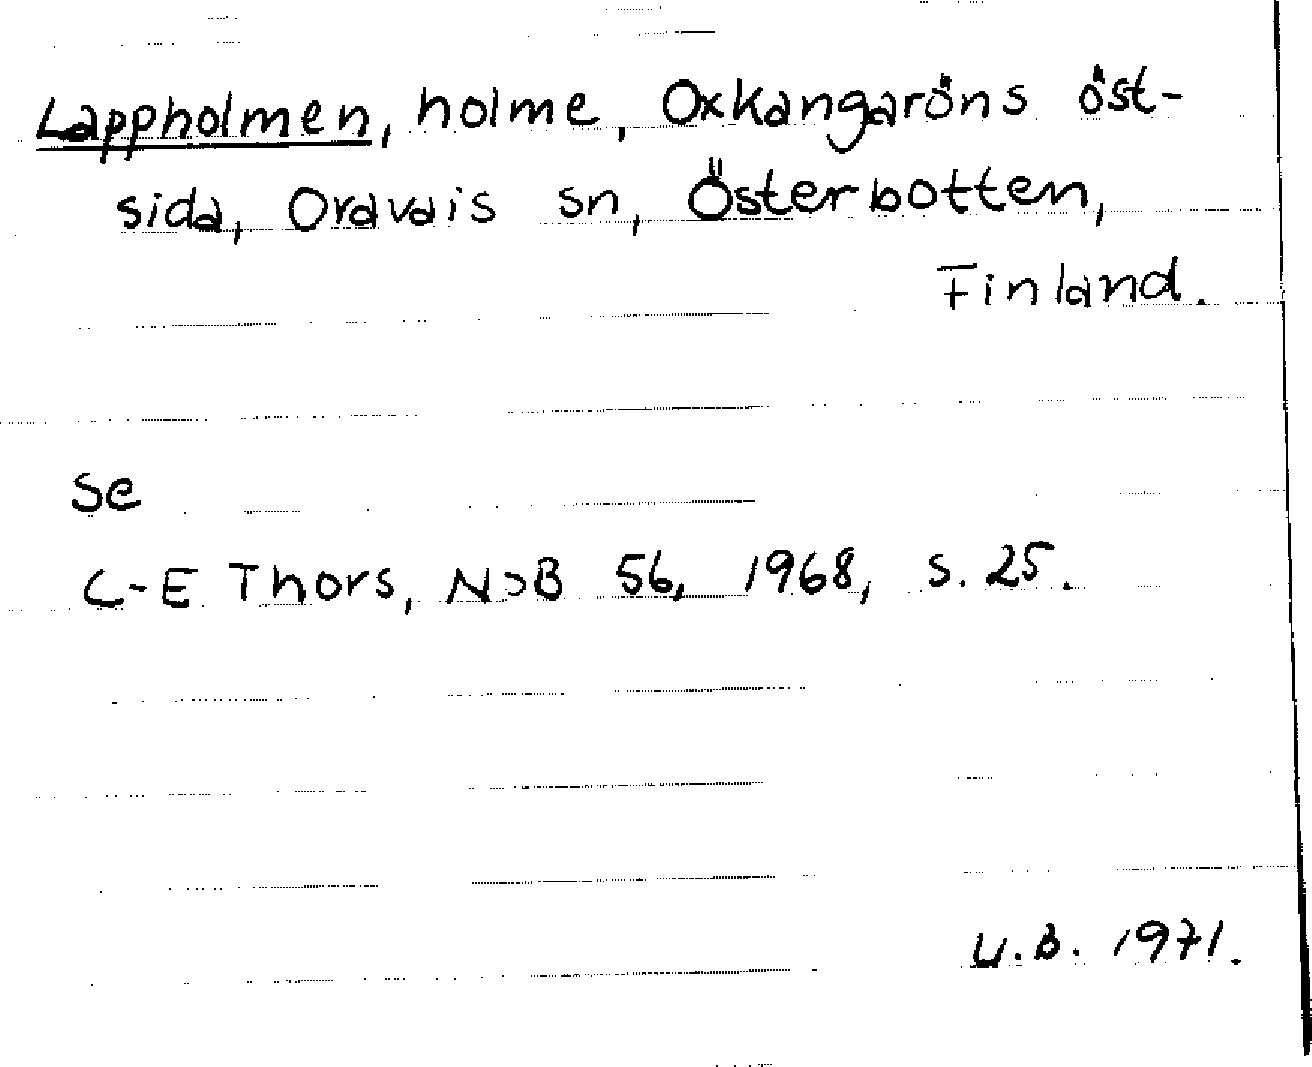 Lappholmen, holme, Oxkangaröns öst-
sida, Oravais sn, Österbotten,
Finland.
Se
C-E Thors, NoB 56, 1968, s. 25.
U.B. 1971.